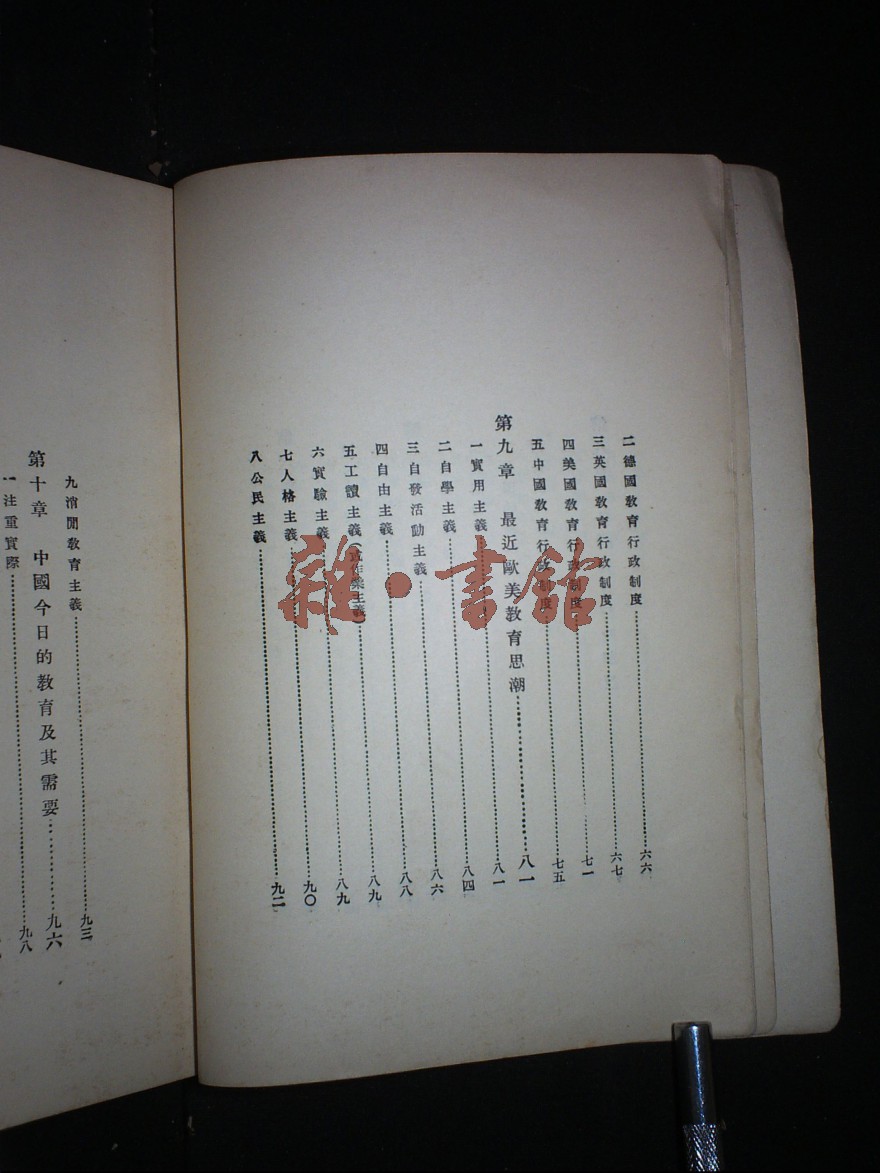 二 德國教育行政制度……六六
三 英國教育行政制度……六七
四 美國教育行政制度……七一
五 中國教育行政制度……七五
第九章　最近歐美教育思潮……八一
一 實用主義……八一
二 自學主義……八四
三 自發活動主義……八六
四 自由主義……八八
五 工讀主義(或作業主義)……八九
六 實驗主義……八九
七 人格主義……九〇
八 公民主義……九二
九 消閒教育主義……九三
第十章　中國今日的教育及其需要……九六
一 注重實際……九八
雜·書館